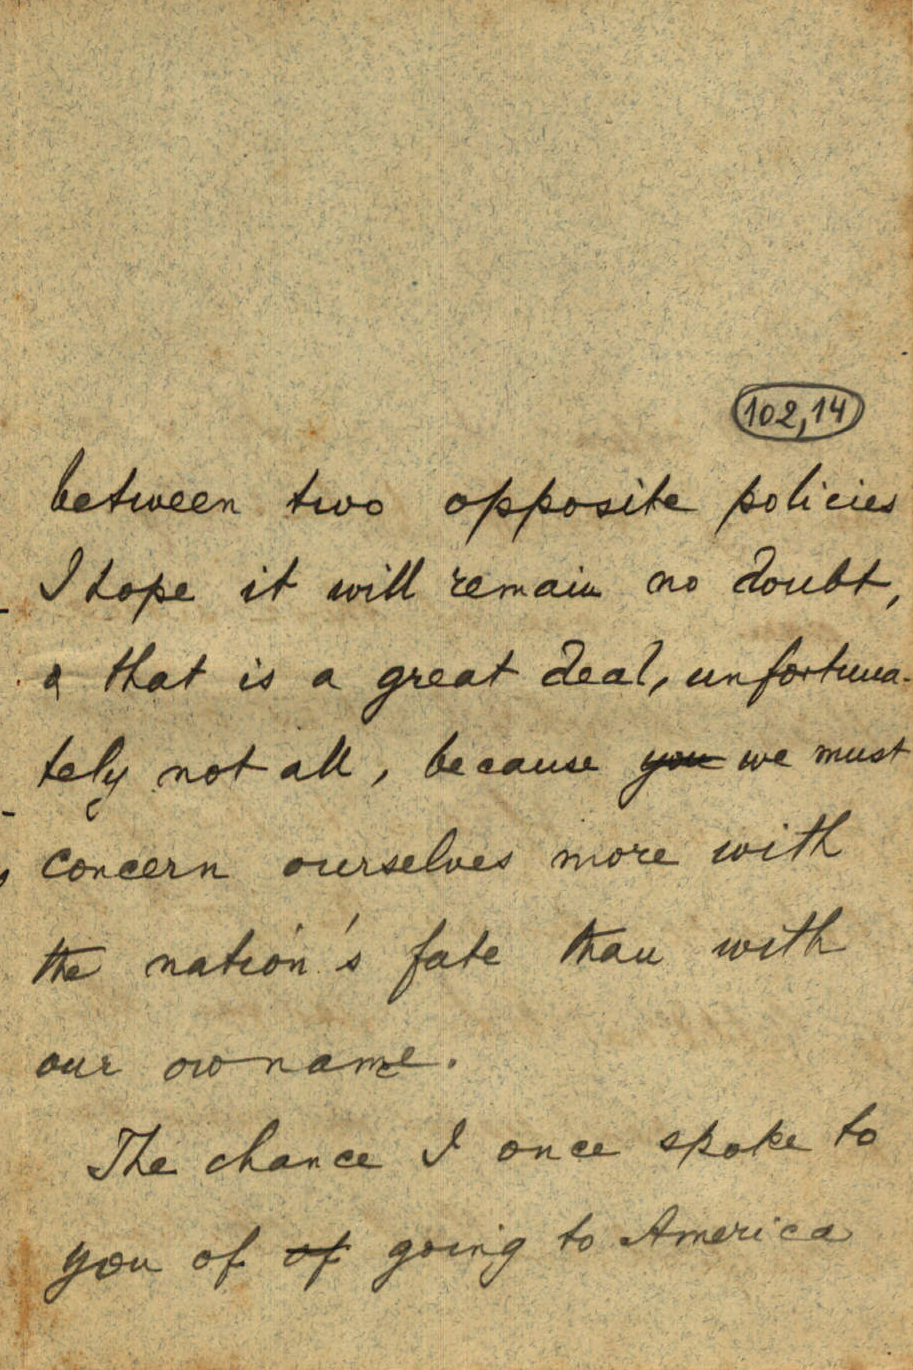 102,14
between two opposite policies
I hope it will remain no doubt,
& that is a great deal, unfortuna-
tely not all, because you we must
concern ourselves more with
the nation's fate than with
our owname.
The chance I once spoke to
you of of going to America